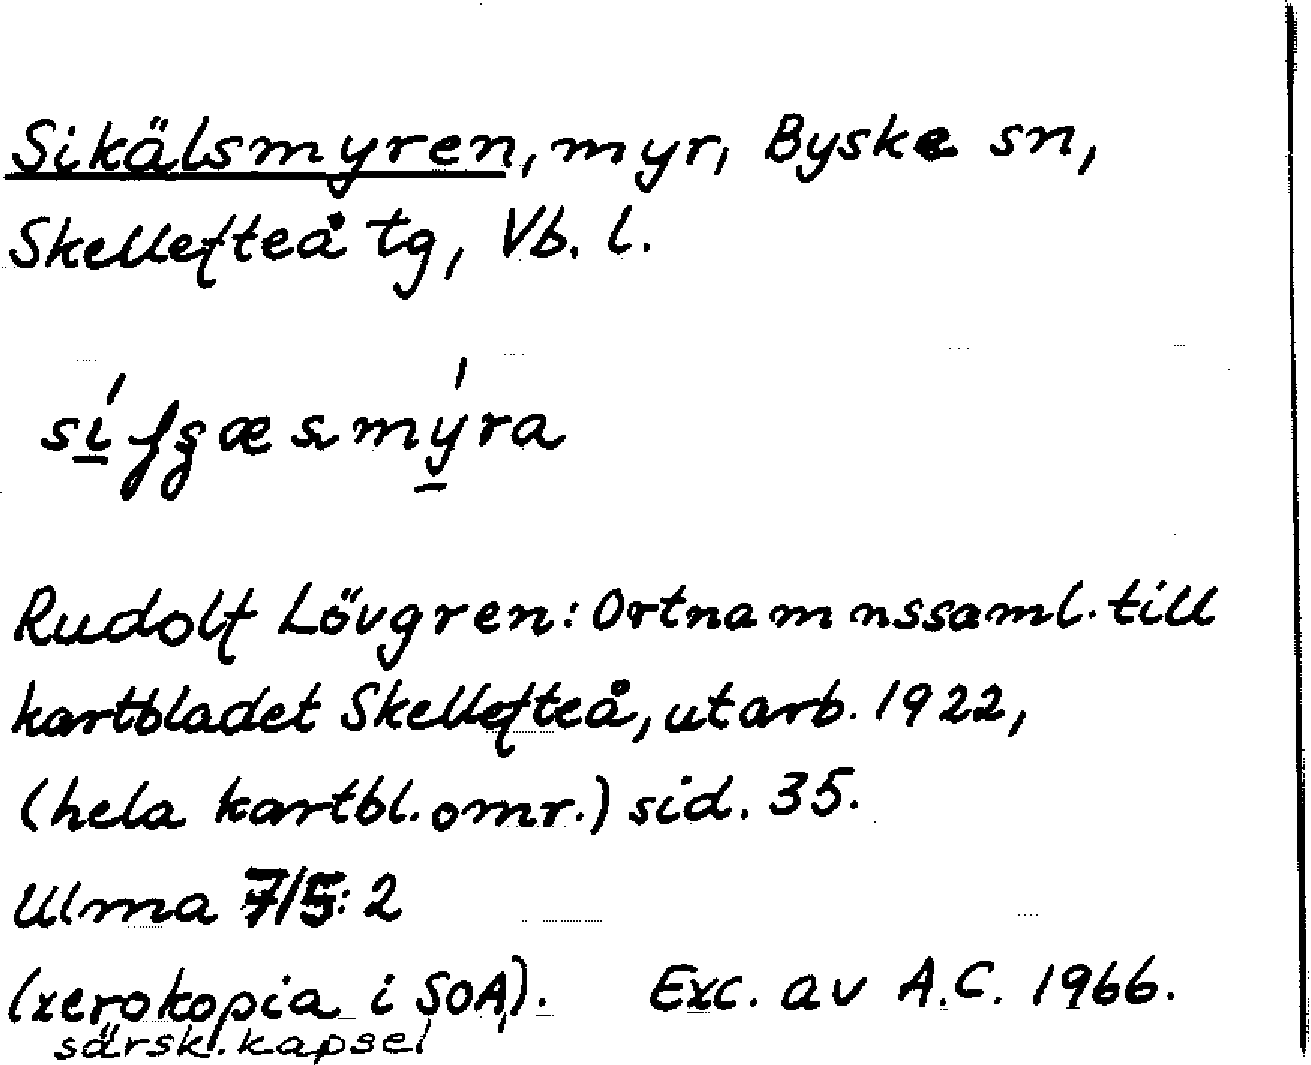 Sikälsmyren, myr, Byske sn,
Skellefteå tg, Vb. l.
Rudolf Lövgren: Ortnamnssaml. till
kartbladet Skellefteå, utarb. 1922,
(hela kartbl.omr.) sid. 35.
Ulma 7/5: 2
(xerokopia i SOA).    Exc. av A.C. 1966.
särsk. kapsel